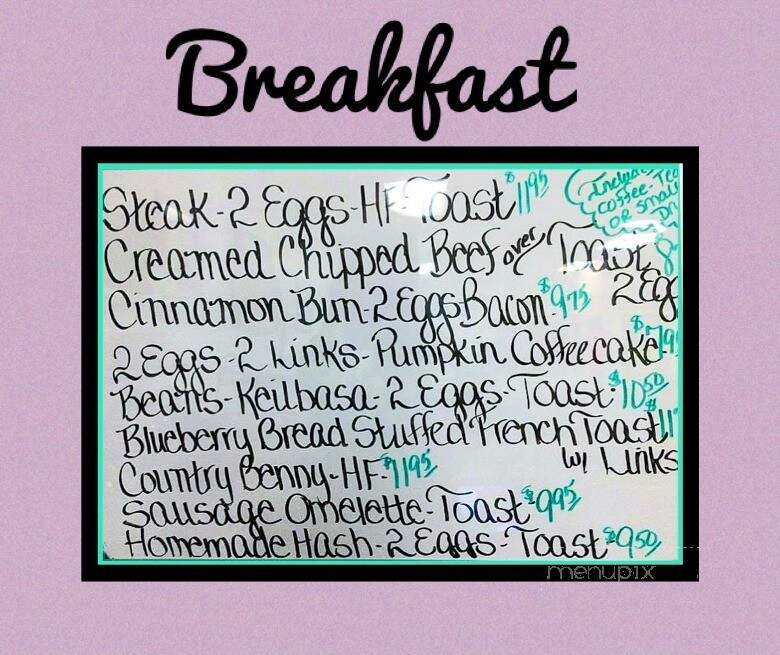 Breakfast
Steak-2 Eggs-HF-Toast $11.95
Includes
coffee-Tea
OR Small
Creamed Chipped Beef over Toast
2 Eg
Cinnamon Bun-2 Eggs Bacon $9.75
2 Eggs-2 Links-Pumpkin Coffeecake
Beans-Keilbasa-2 Eggs-Toast-$10.50
Blueberry Bread Stuffed French Toast
w/ Links
Country Benny-HF-$11.95
Sausage Omelette-Toast-$9.95
Homemade Hash-2 Eggs-Toast $9.50
menupix